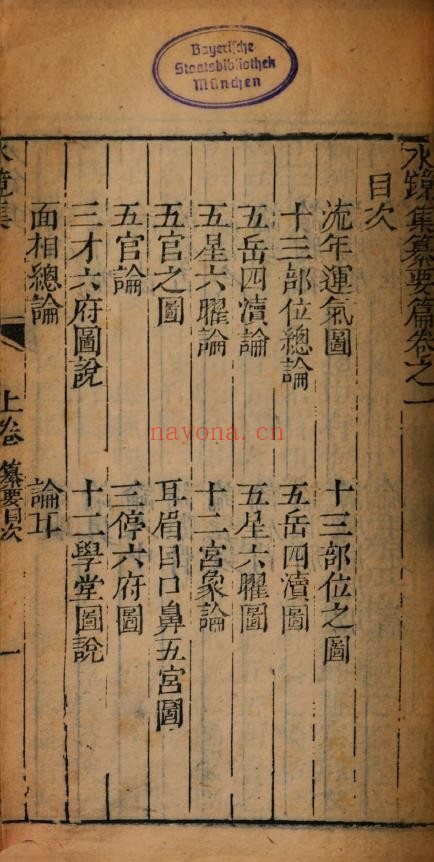 Bayerische
Staatsbibliothek
München
水鏡集纂要篇卷之一
目次
流年運氣圖
十三部位之圖
十三部位總論
五岳四瀆圖
五岳四瀆論
五星六曜圖
五星六曜論
十二宮象論
五官之圖
耳眉目口鼻五宮圖
五官論
三停六府圖
三才六府圖說
十二學堂圖說
面相總論
論耳
水鏡集
上卷
纂要目次
一
nayona.cn